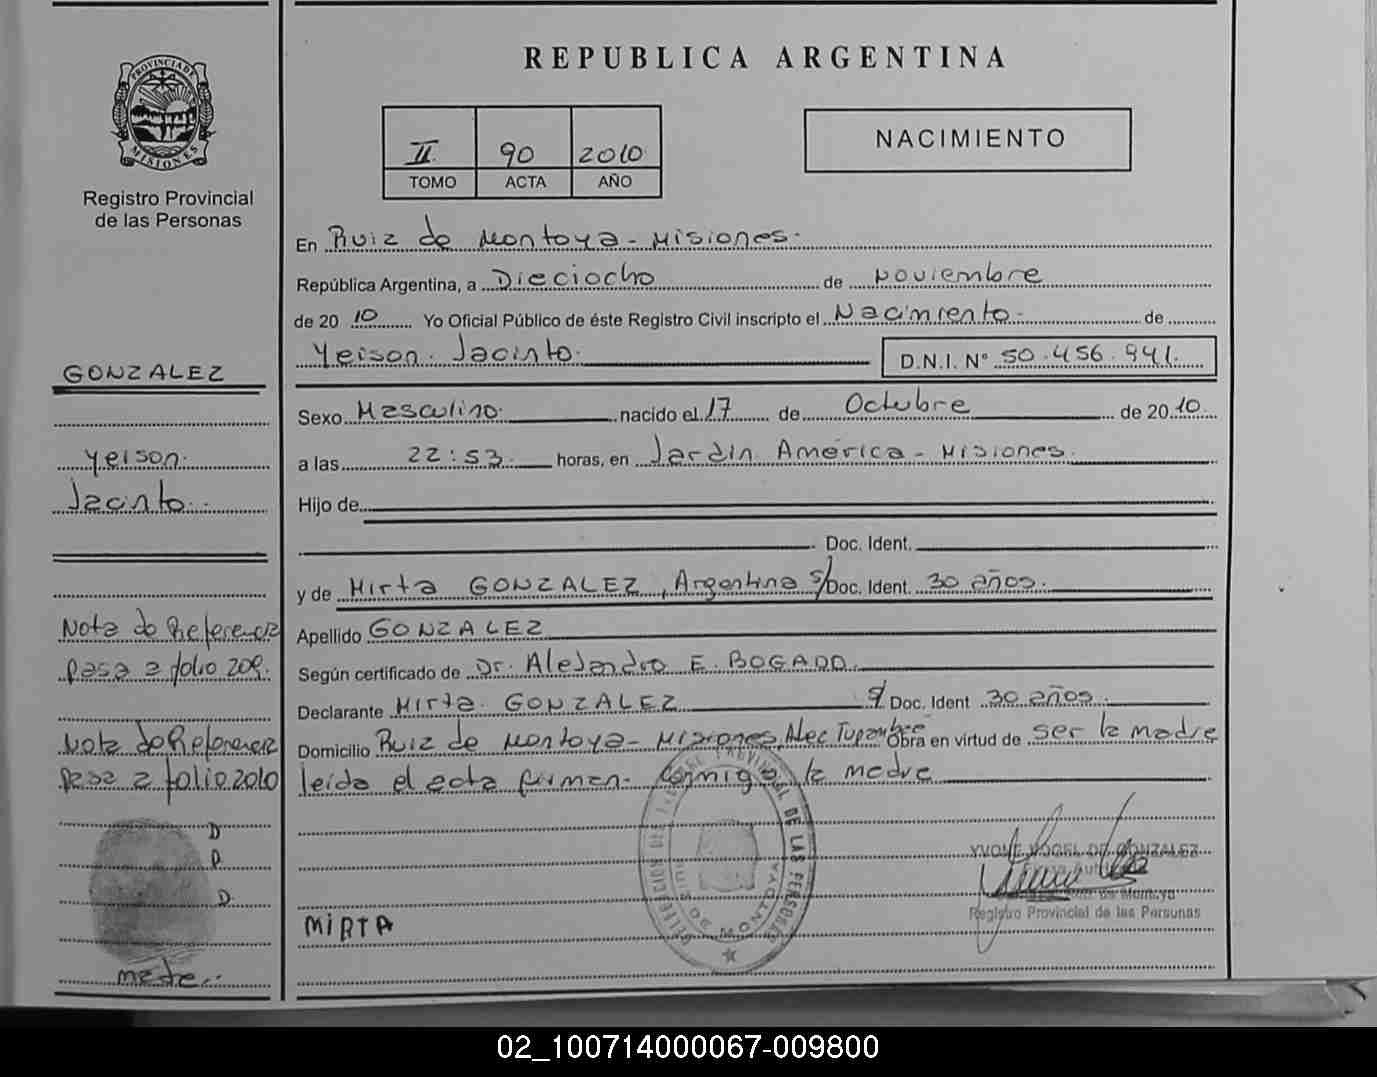 PROVINCIA DE
MISIONES
Registro Provincial
de las Personas
GONZALEZ
Yeison.
Jacinto.
Nota de Referencia
pasa a folio 209.
Nota de Referencia
pasa a folio 2010
D
P
D
madre.
REPUBLICA ARGENTINA
II 90 2010
TOMO ACTA AÑO
NACIMIENTO
En Ruiz de Montoya - Misiones.
República Argentina, a Dieciocho de Noviembre
de 20 10 Yo Oficial Público de éste Registro Civil inscripto el Nacimiento. de
Yeison. Jacinto. D.N.I. N° 50.456.941.
Sexo Masculino. nacido el 17 de Octubre de 20 10
a las 22:53. horas, en Jardín América - Misiones.
Hijo de
Doc. Ident.
y de Mirta GONZALEZ, Argentina s/ Doc. Ident. 30 años.
Apellido GONZALEZ
Según certificado de Dr. Alejandro E. BOGADO.
Declarante Mirta. GONZALEZ s/ Doc. Ident 30 años.
Domicilio Ruiz de Montoya - Misiones, Obra en virtud de ser la madre
leída el acta firman. conmigo la madre
DE LAS PERSONAS
MONTOYA
MiRTA
YVONE VOGEL DE GONZALEZ
Registro Provincial de las Personas
02_100714000067-009800